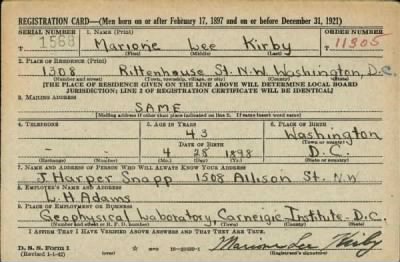 REGISTRATION CARD—(Men born on or after February 17, 1897 and on or before December 31, 1921)
SERIAL NUMBER 1. NAME (Print) ORDER NUMBER
1568 Marione Lee Kirby 11305
(First) (Middle) (Last)
2. PLACE OF RESIDENCE (Print)
1308 Rittenhouse St. N.W. Washington, D.C.
(Number and street) (Town, township, village, or city) (County) (State)
[THE PLACE OF RESIDENCE GIVEN ON THE LINE ABOVE WILL DETERMINE LOCAL BOARD
JURISDICTION; LINE 2 OF REGISTRATION CERTIFICATE WILL BE IDENTICAL]
3. MAILING ADDRESS
SAME
[Mailing address if other than place indicated on line 2. If same insert word same]
4. TELEPHONE 5. AGE IN YEARS 6. PLACE OF BIRTH
43 Washington
DATE OF BIRTH (Town or county)
4 28 1898 D.C.
(Exchange) (Number) (Mo.) (Day) (Yr.) (State or country)
7. NAME AND ADDRESS OF PERSON WHO WILL ALWAYS KNOW YOUR ADDRESS
J Harper Snapp 1508 Allison St. N.W.
8. EMPLOYER'S NAME AND ADDRESS
L. H Adams
9. PLACE OF EMPLOYMENT OR BUSINESS
Geophysical Laboratory Carneigie Institute-D.C.
(Number and street or R. F. D. number) (Town) (County) (State)
I AFFIRM THAT I HAVE VERIFIED ABOVE ANSWERS AND THAT THEY ARE TRUE.
D. S. S. Form 1
(Revised 1-1-42) Marione Lee Kirby
(Registrant's signature)